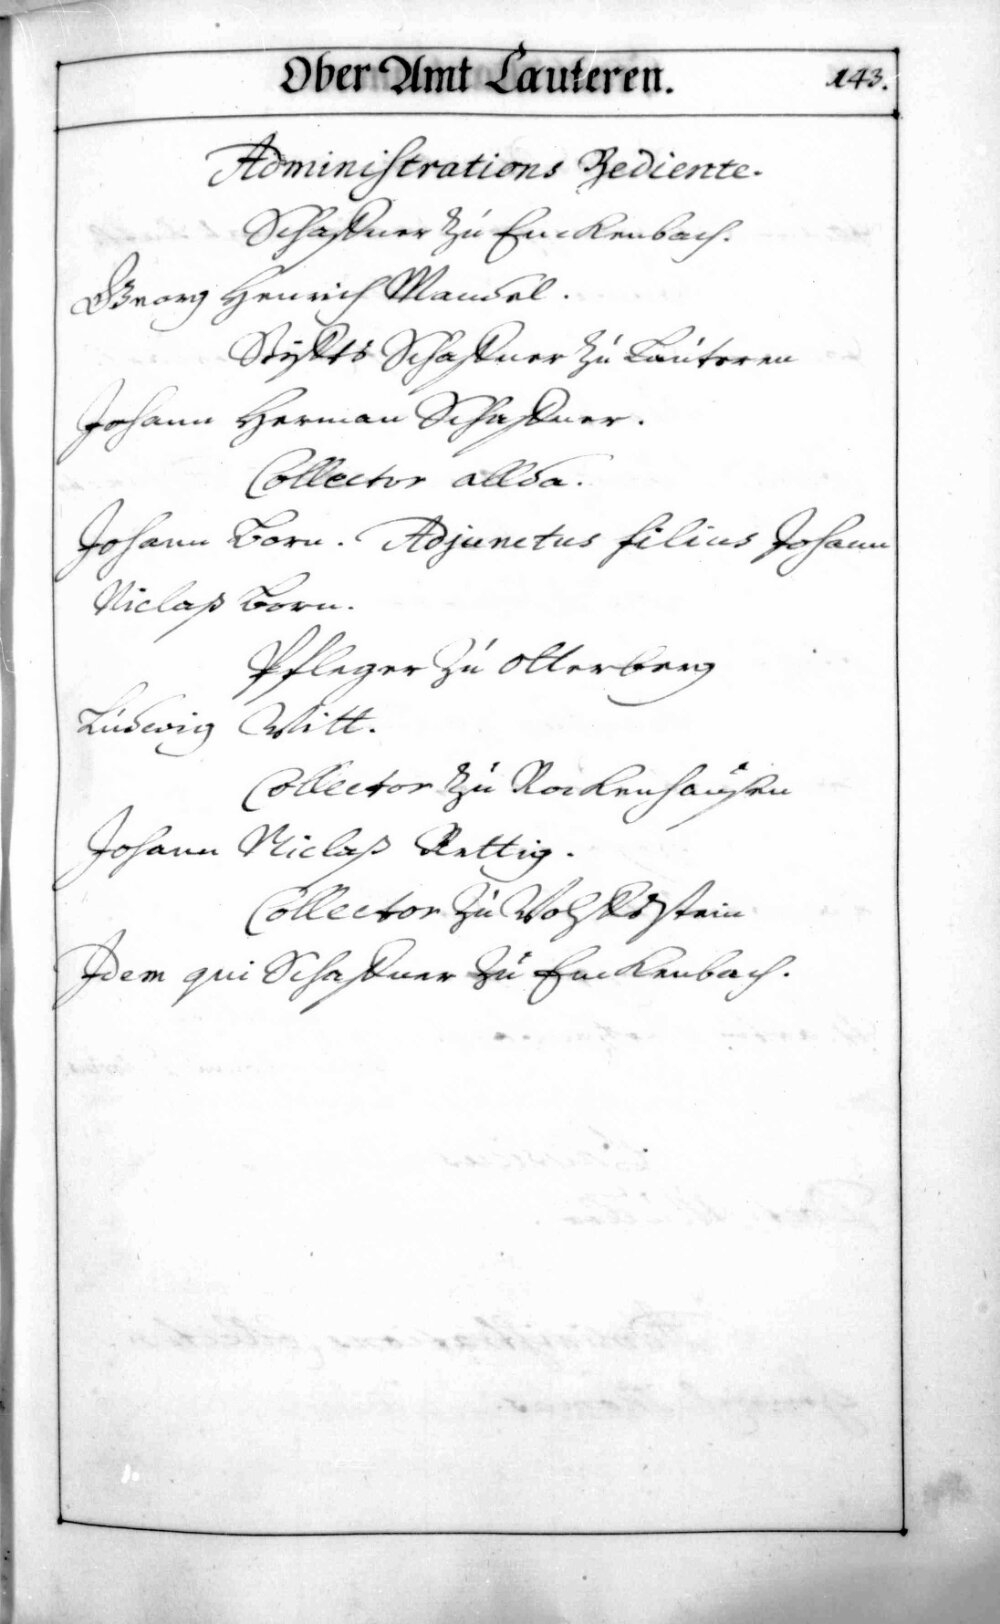 Ober Amt Lauteren. 143.
Administrations Bediente.
Schaffner zu Enckenbach.
Georg Henrich Mandel.
Stiffts Schaffner zu Lauteren
Johann Herman Schaffner.
Collector allda.
Johann Born. Adjunctus filius Johann
Niclaß Born.
Pfleger zu Otterberg
Ludwig Witt.
Collector zu Rockenhaußen
Johann Niclaß Rettig.
Collector zu Wolffstein
Idem qui Schaffner zu Enckenbach.